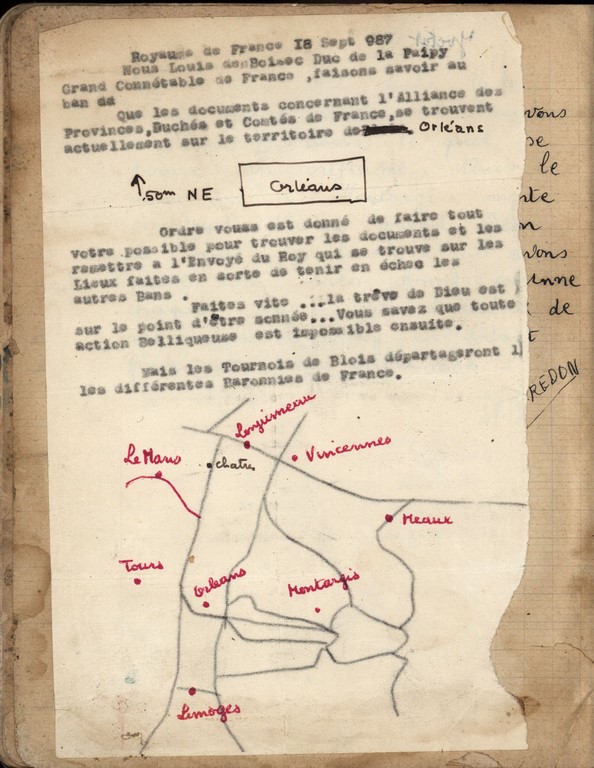 Royaume de France 18 Sept 987
Nous Louis desBoisec Duc de la Paipy
Grand Connétable de France ,faisons savoir au
ban dd
Que les documents concernant l'Alliance des
Provinces,Duchés et Comtés de France,se trouvent
actuellement sur le territoire de Orléans
50m NE
Orléans
Ordre vouss est donné de faire tout
votre possible pour trouver les documents et les
remettre a l'Envoyé du Roy qui se trouve sur les
Lieux faites en sorte de tenir en échec les
autres Bans .
Faites vite ...la trève de Dieu est
sur le point d'être sonnée...Vous savez que toute
action Belliqueuse est impossible ensuite.
Mais les Tournois de Blois départageront l
les différentes Baronnies de France.
Lonjumeau
Le Mans
chatres
Vincennes
Meaux
Tours
Orleans
Montargis
Limoges
vons
se
le
n
vons
nne
de
t
REDON